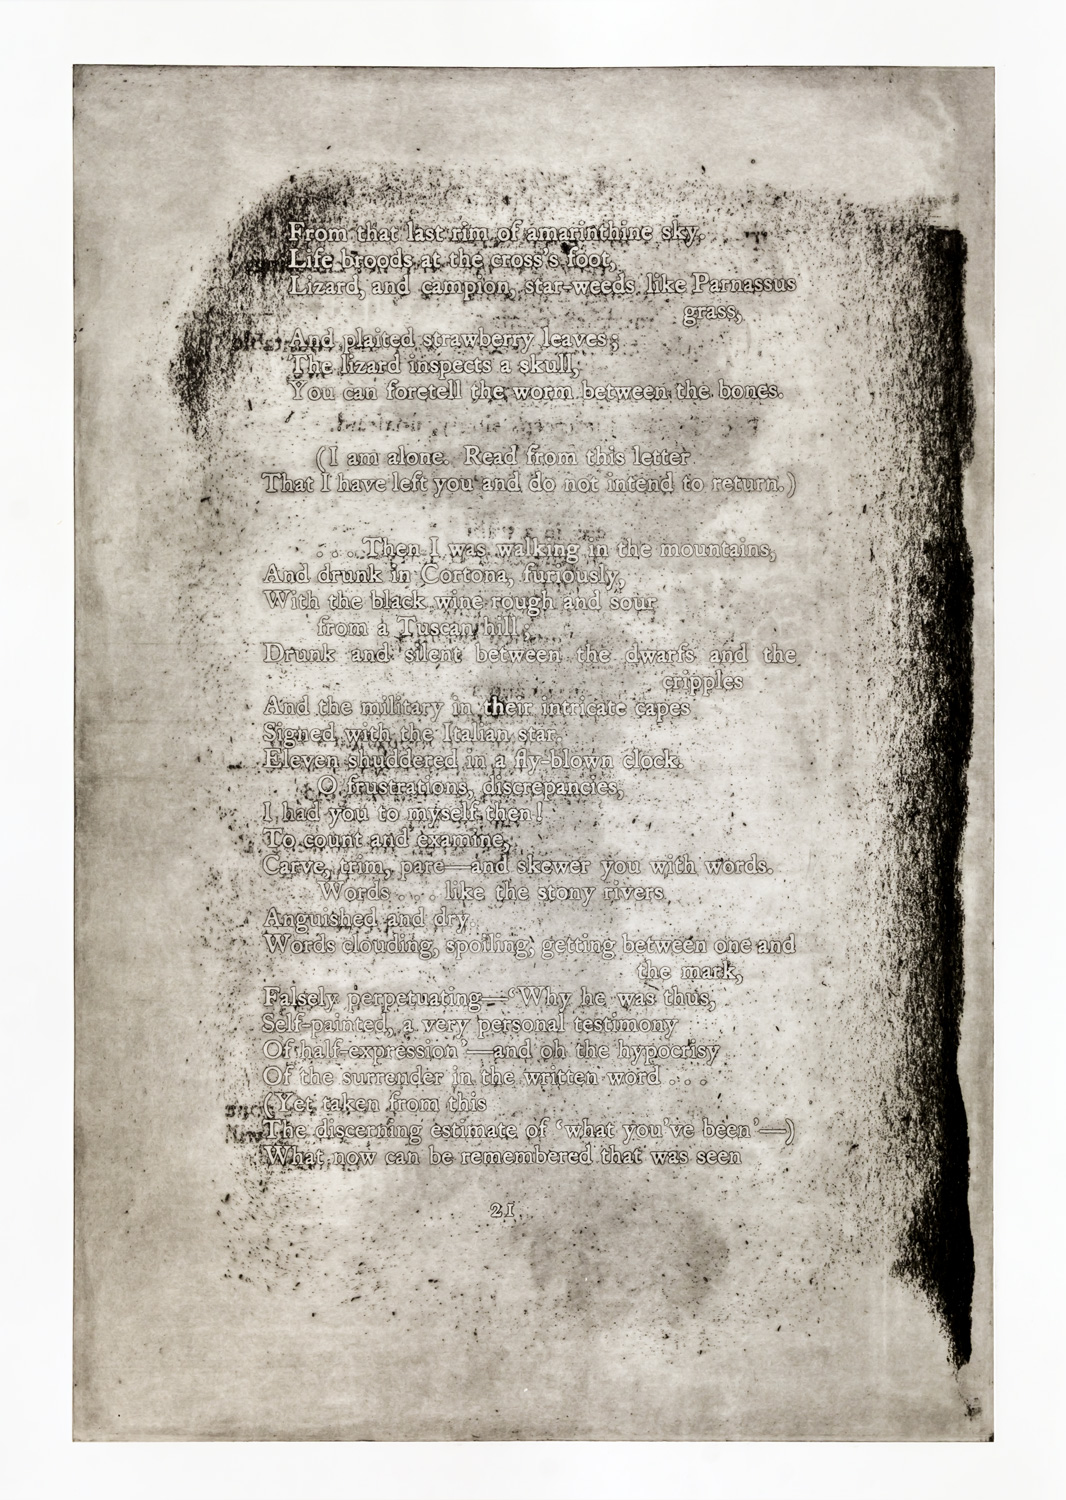 From that last rim of amarinthine sky.
Life broods at the cross's foot,
Lizard, and campion, star-weeds like Parnassus
grass,
And plaited strawberry leaves;
The lizard inspects a skull,
You can foretell the worm between the bones.
(I am alone. Read from this letter
That I have left you and do not intend to return.)
. . . Then I was walking in the mountains,
And drunk in Cortona, furiously,
With the black wine rough and sour
from a Tuscan hill;
Drunk and silent between the dwarfs and the
cripples
And the military in their intricate capes
Signed with the Italian star,
Eleven shuddered in a fly-blown clock.
O frustrations, discrepancies,
I had you to myself then!
To count and examine,
Carve, trim, pare—and skewer you with words.
Words . . . like the stony rivers
Anguished and dry.
Words clouding, spoiling, getting between one and
the mark,
Falsely perpetuating—‘Why he was thus,
Self-painted, a very personal testimony
Of half-expression’—and oh the hypocrisy
Of the surrender in the written word . . .
(Yet taken from this
The discerning estimate of ‘what you've been’—)
What now can be remembered that was seen
21